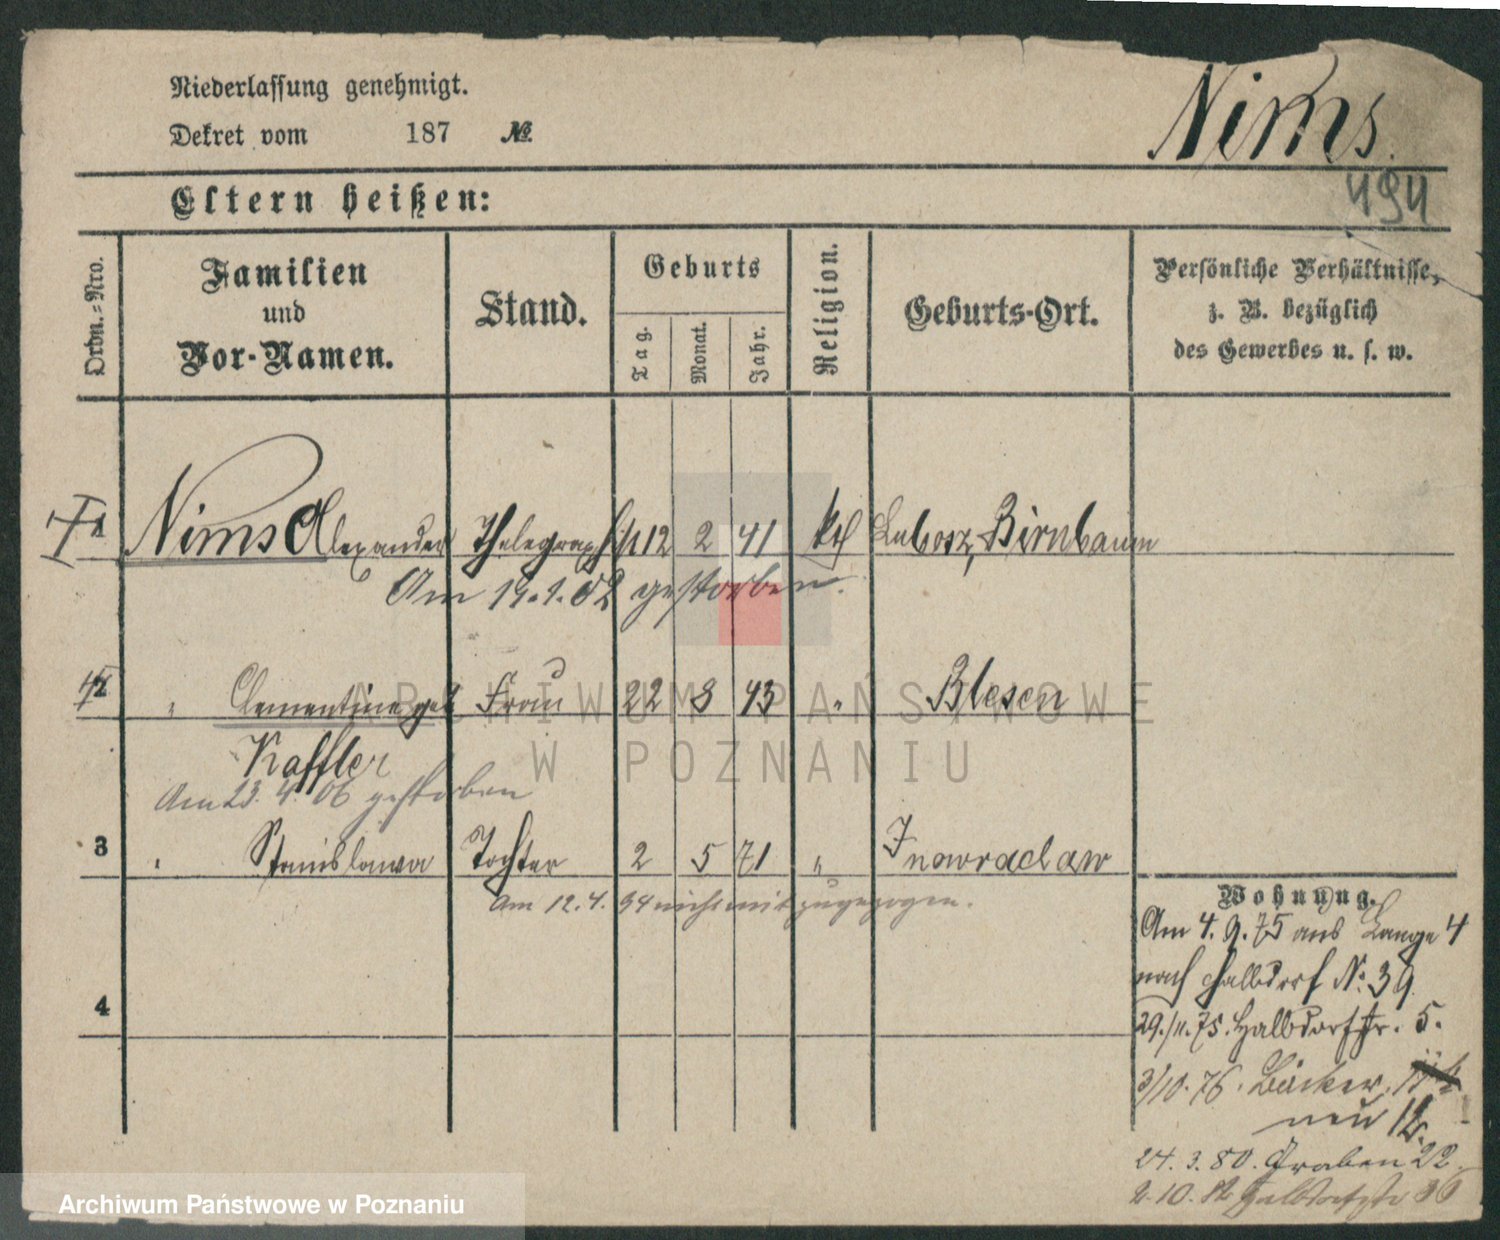 Niederlassung genehmigt.
Dekret vom 187 №
Nims.
494
Eltern heißen:
Ordn.-Nro.
Familien
und
Vor-Namen.
Stand.
Geburts
Tag.
Monat.
Jahr.
Religion.
Geburts-Ort.
Persönliche Verhältnisse,
z. B. bezüglich
des Gewerbes u. s. w.
1 Nims Alexander 12 2 41 kth Lubosz, Birnbaum
Am 19.1.02 gestorben.
2 " Clementine geb Frau 22 8 43 " Blesen
Kaffler
Am 23. 4. 06 gestorben
3 " Stanislawa Tochter 2 5 71 " Inowraclaw
Am 12. 4. 94 nicht mit zugezogen.
4
Wohnung.
Am 4. 9. 75 aus Lange 4
nach Halbdorf N: 39
29./11. 75. Halbdorfstr. 5.
3/10. 76. Bäcker
neu
24. 3. 80. Graben 22
2. 10. 82 Halbdorfstr 36
ARCHIWUM PAŃSTWOWE
W POZNANIU
Archiwum Państwowe w Poznaniu